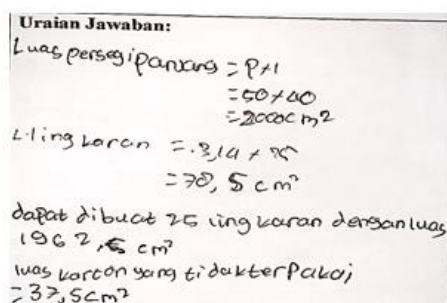 Uraian Jawaban:
Luas persegipanjang = P×l
= 50×40
= 2000 cm2
L.lingkaran = 3,14 × 25
= 78,5 cm²
dapat dibuat 25 lingkaran dengan luas
1962,5 cm²
luas karton yang tidak terpakai
= 37,5 cm2